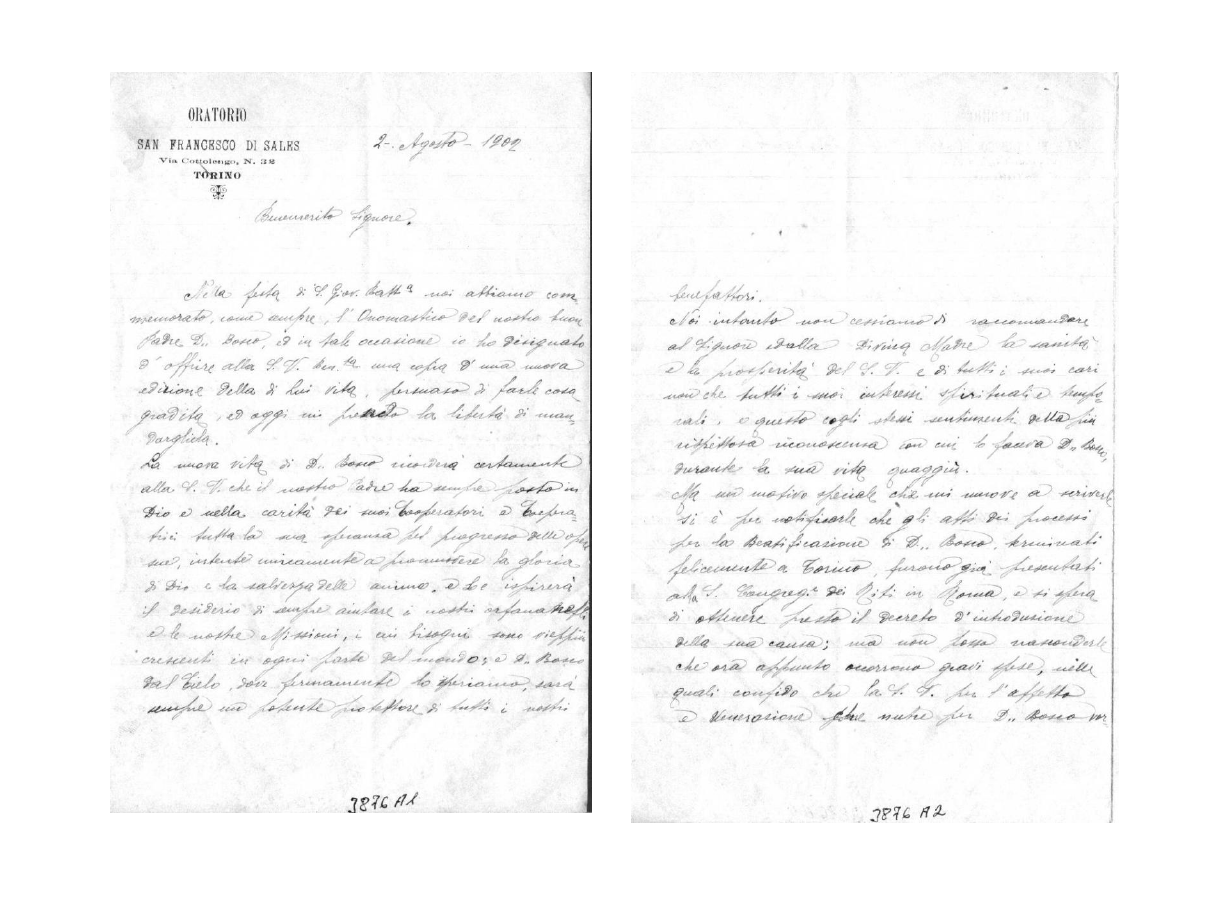 ORATORIO
SAN FRANCESCO DI SALES
Via Cottolengo, N. 32
TORINO
2-. Agosto - 1902
Benemerito Signore.
Nella festa di S. Giov. Batt.ª noi abbiamo com
memorato, come sempre, l'Onomastico del nostro buon
Padre D.. Bosco, ed in tale occasione io ho disegnato
d'offrire alla S. V. Ben.ta una copia d'una nuova
edizione della di Lui vita, persuaso di farle cosa
gradita, ed oggi mi prendo la libertà di man
dargliela.
La nuova vita di D.. Bosco ricorderà certamente
alla S. V. che il nostro Padre ha sempre posto in
Dio e nella carità dei suoi Cooperatori e Coopera-
trici tutta la sua speranza pel progresso delle opere
sue, intente unicamente a promuovere la gloria
di Dio e la salvezza delle anime, e Le ispirerà
il desiderio di sempre aiutare i nostri orfanatrofi
e le nostre Missioni, i cui bisogni sono vieppiù
crescenti in ogni parte del mondo; e D.. Bosco
dal Cielo, dove fermamente lo speriamo, sarà
sempre un potente protettore di tutti i nostri
3876 A1
benefattori.
Noi intanto non cessiamo di raccomandare
al Signore e dalla Divina Madre la sanità
e la prosperità del S. V. e di tutti i suoi cari
non che tutti i suoi interessi spirituali e tempo-
rali, e questo cogli stessi sentimenti della più
rispettosa riconoscenza con cui lo faceva D.. Bosco,
durante la sua vita quaggiù.
Ma un motivo speciale che mi muove a scriverle
si è per notificarle che gli atti dei processi
per la Beatificazione di D.. Bosco, terminati
felicemente a Torino, furono già presentati
alla S. Congreg.e dei Riti in Roma, e si spera
di ottenere presto il decreto d'introduzione
della sua causa; ma non posso nasconderle
che ora appunto occorrono gravi spese, nelle
quali confido che la S. V. per l'affetto
e venerazione che nutre per D.. Bosco vor
3876 A2